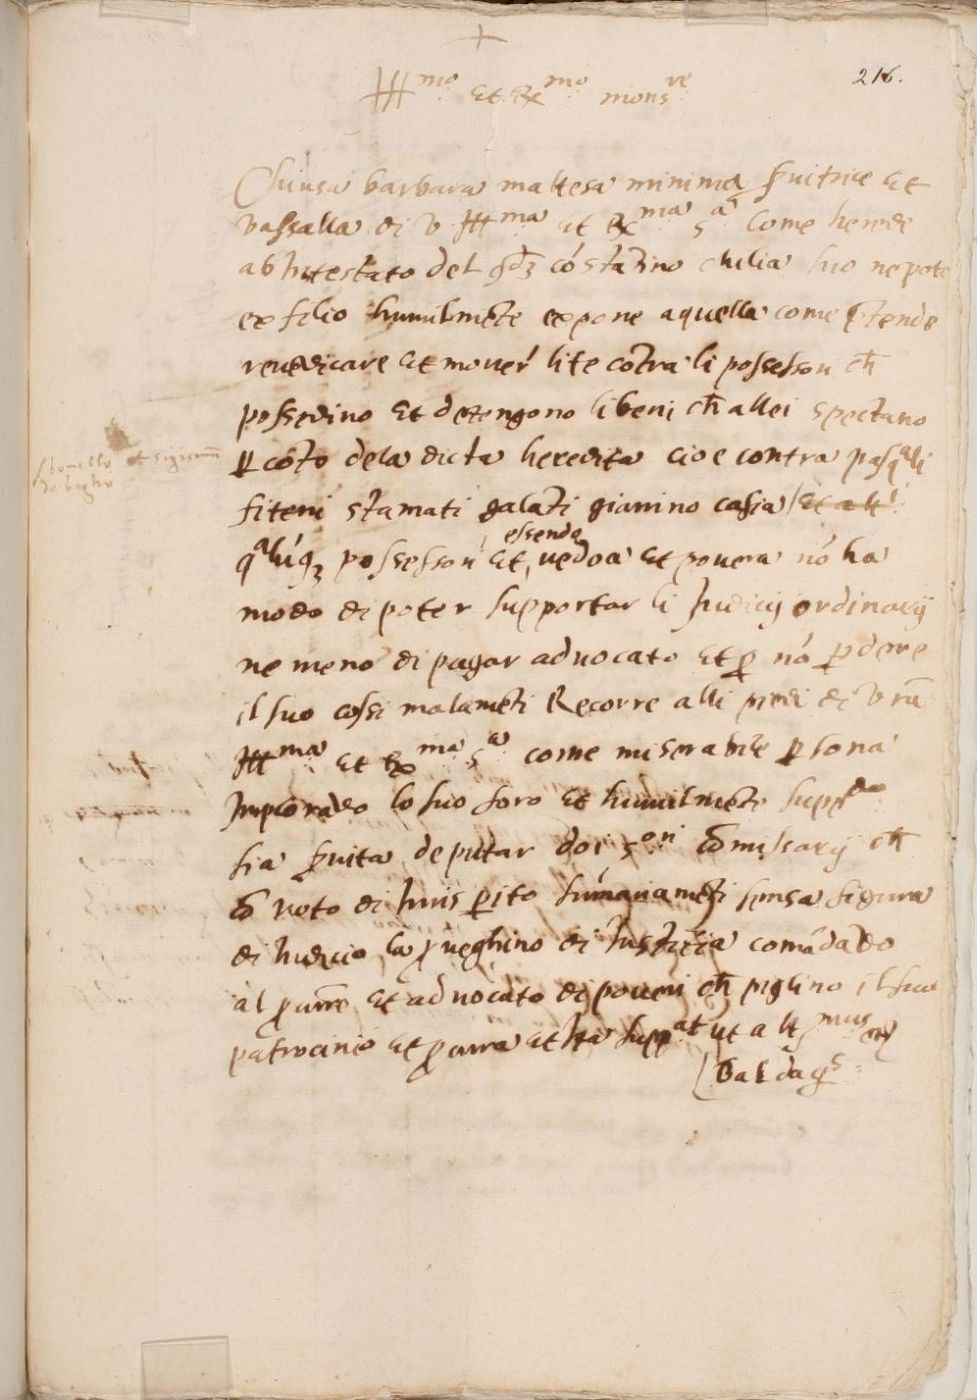 +
Ill.mo et R.mo mons.re
216.
barbara maltesa minima s'uitrice et
vassalla di v Ill ma et R ma s a come herede
ab intestato del qd cóstãtino chilia suo nepote
ex filio humilmẽte expone a quella come p̃tende
reuẽdicare et mouer lite cõtra li possessori ch̃
possedino et detengono li beni ch̃ allei spectano
p cõto dela dicta heredita cio e contra pasq.li
fiteni stamati galati gianino casia / et alt.i
possessori et uedoa et pouera nó ha
essendo
modo di poter supportar li Iudicij ordinarij
ne meno di pagar aduocato et p nó p dere
il suo cossi malamẽti Recorre alli piedi di vr̃a
Ill ma et R ma s a come miserabile p sona
Implorãdo lo suo foro et humilmẽti supp.ca
sia s'uita deputar doi s.ori cõmissarij ch̃
cõ voto di Iuris p ito súmariamẽti sensa figura
di Iudicio la p ueghino di Iustitia comãdãdo
al p curr̃e et aduocato di poueri ch̃ piglino il suo
patrocinio et p cura et ita supp.at ut alt.mus
Baldaq.s